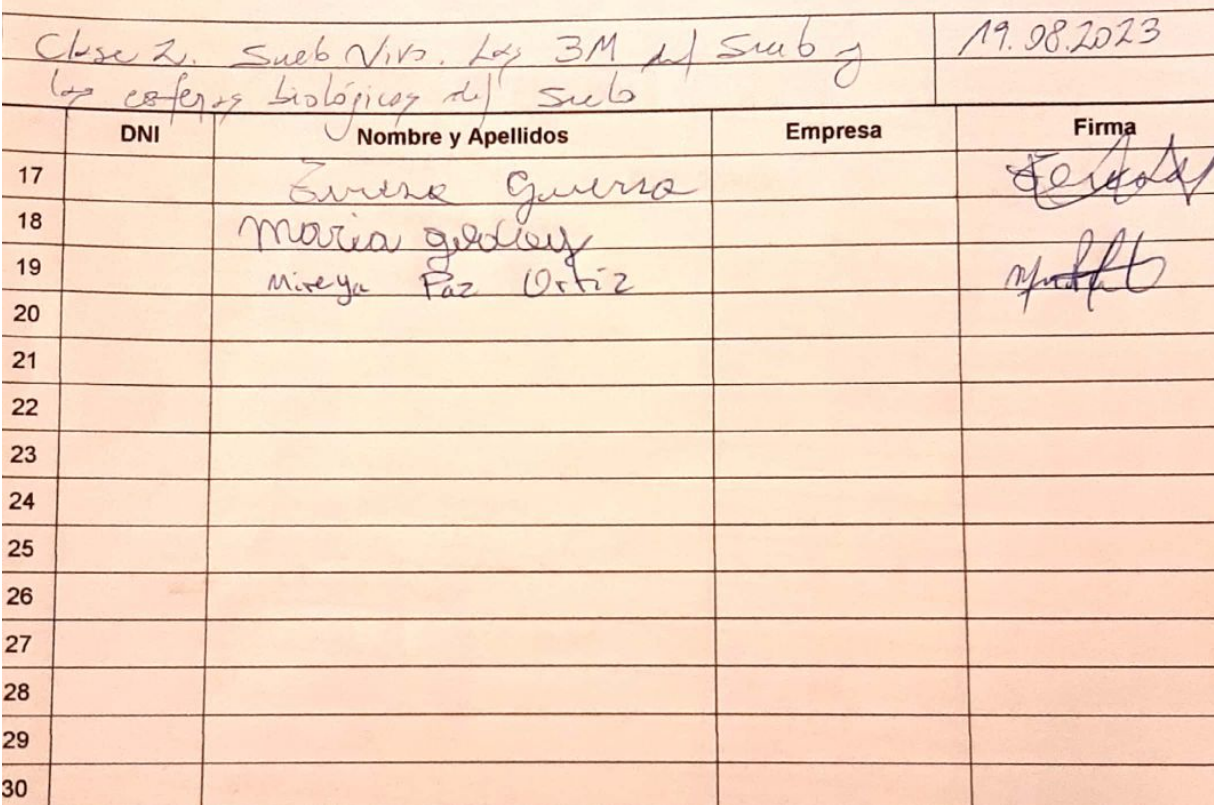 Clase 2. Suelo Vivo. Las 3M del Suelo y
19.08.2023
las esferas biológicas del suelo
DNI Nombre y Apellidos Empresa Firma
17 Guerra
18 Maria godoy
19 Mireya Paz Ortiz
20
21
22
23
24
25
26
27
28
29
30